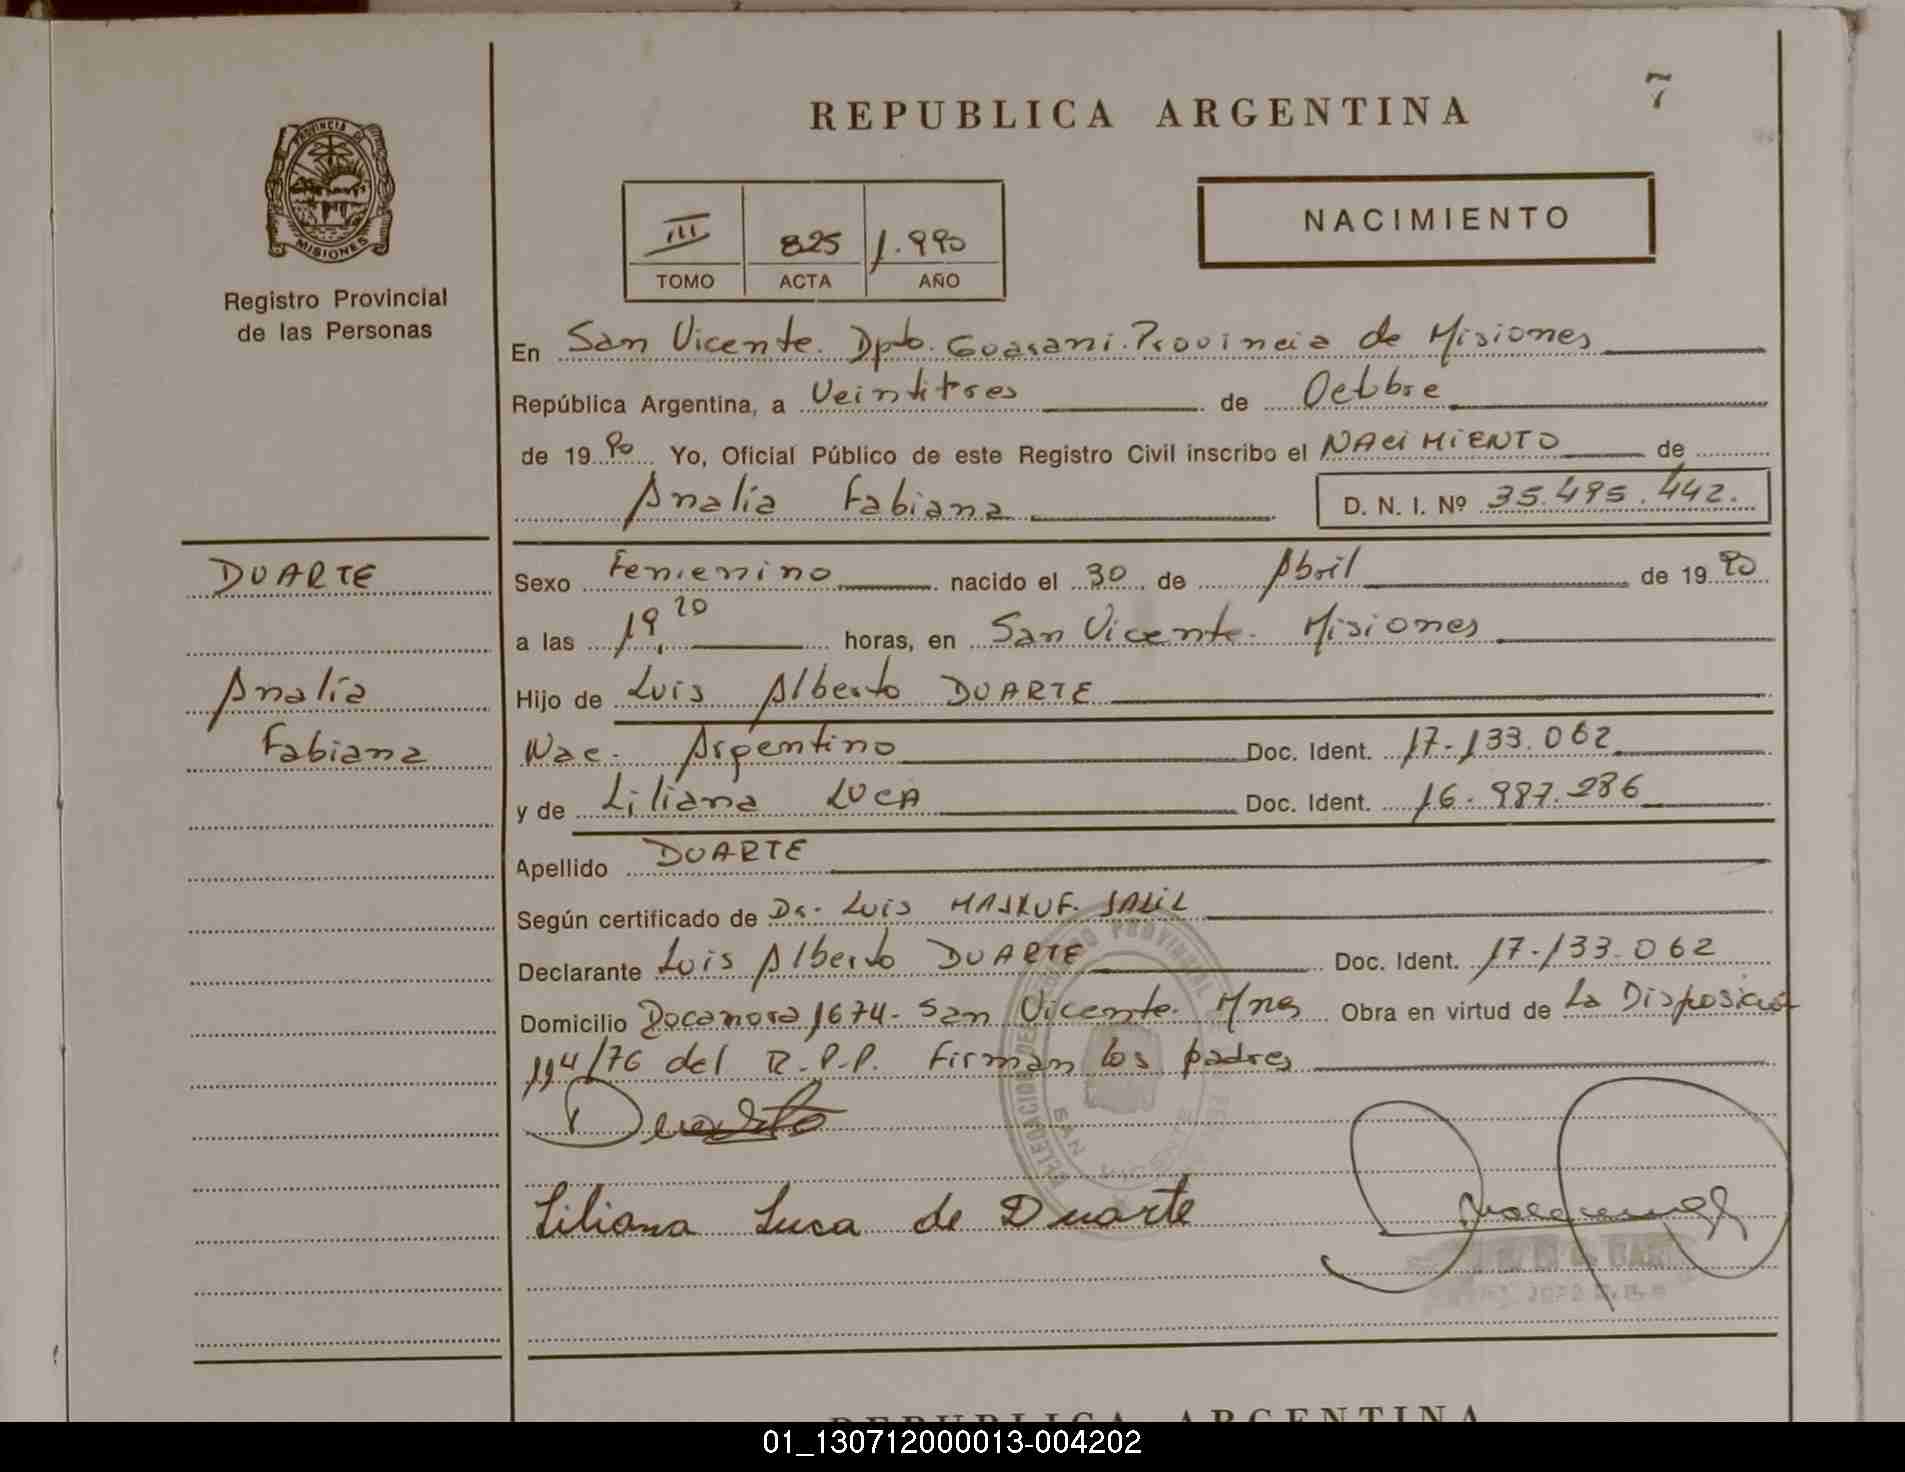 7
REPUBLICA ARGENTINA
PROVINCIA DE
MISIONES
Registro Provincial
de las Personas
NACIMIENTO
III 825 1.990
TOMO ACTA AÑO
En San Vicente. Dpto. Guarani. Provincia de Misiones
República Argentina, a Veintitres de Octbre
de 19 90 Yo, Oficial Público de este Registro Civil inscribo el NACIMIENTO de
Analía Fabiana D. N. I. Nº 35.495.442.
DUARTE
Analía
Fabiana
Sexo Femenino nacido el 30 de Abril de 19 90
a las 19,20 horas, en San Vicente. Misiones
Hijo de Luis Alberto DUARTE
Nac. Argentino Doc. Ident. 17.133.062
y de Liliana LUCA Doc. Ident. 16.987.286
Apellido DUARTE
Según certificado de Dr. Luis
Declarante Luis Alberto DUARTE Doc. Ident. 17.133.062
Domicilio 1674. San Vicente. Mnes Obra en virtud de La Disposición
114/76 del R.P.P. Firman los padres
Liliana Luca de Duarte
REPUBLICA ARGENTINA
01_130712000013-004202